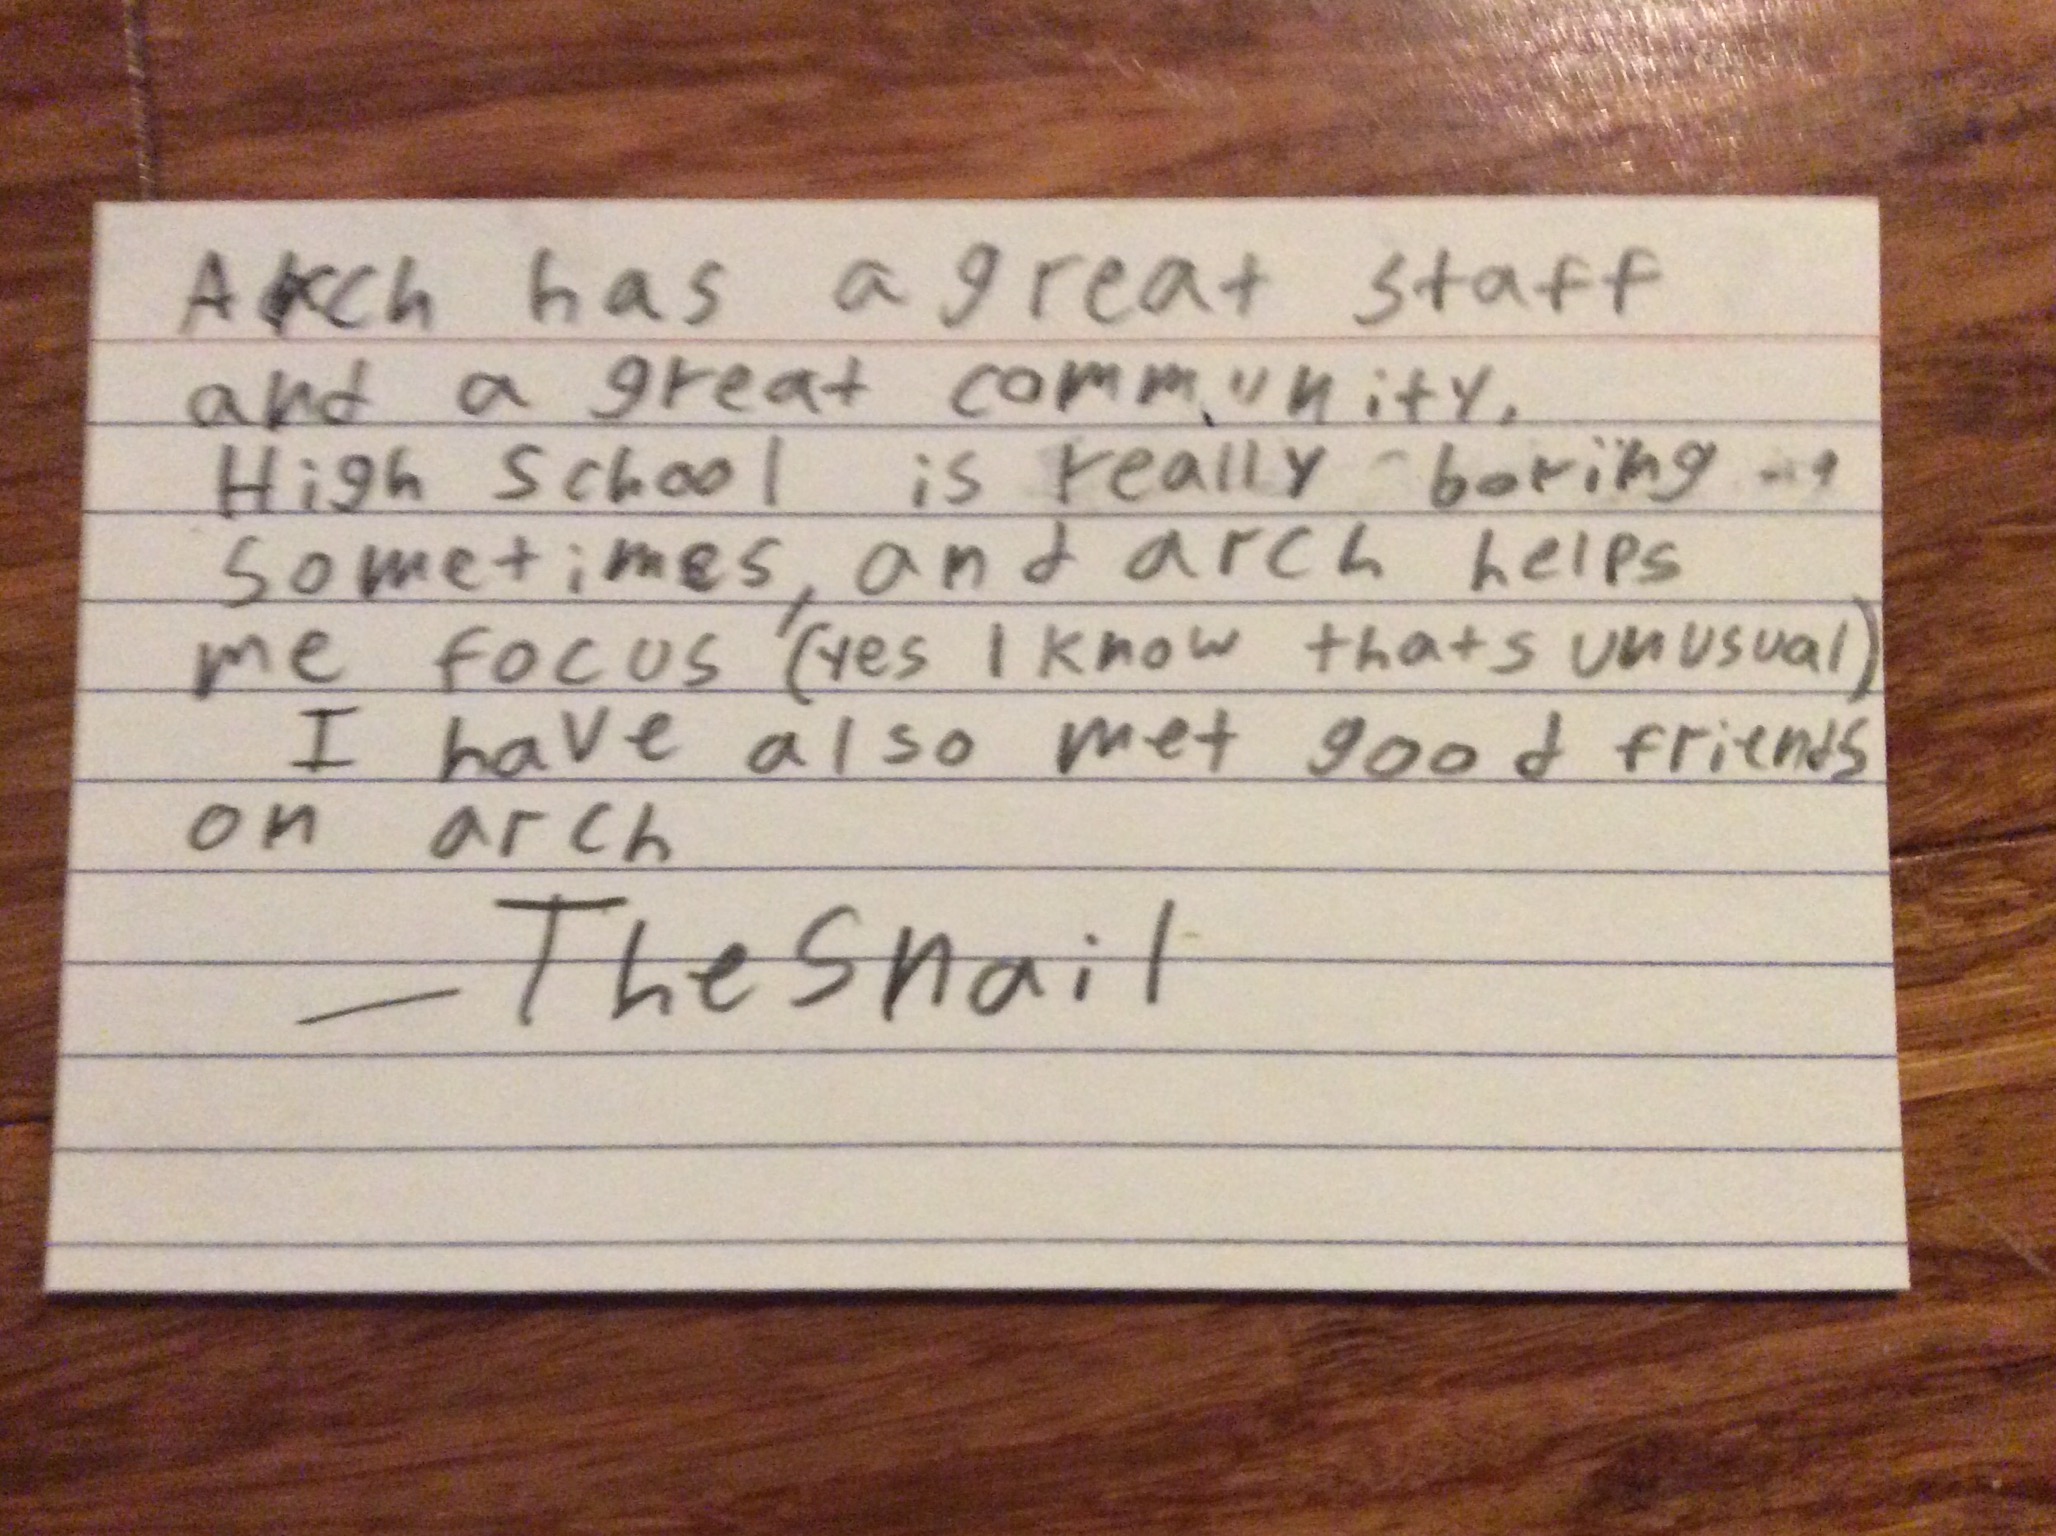 Arch has a great staff
and a great community.
High School is really boring
sometimes, and arch helps
me focus (yes I know thats unusual)
I have also met good friends
on arch
— The Snail